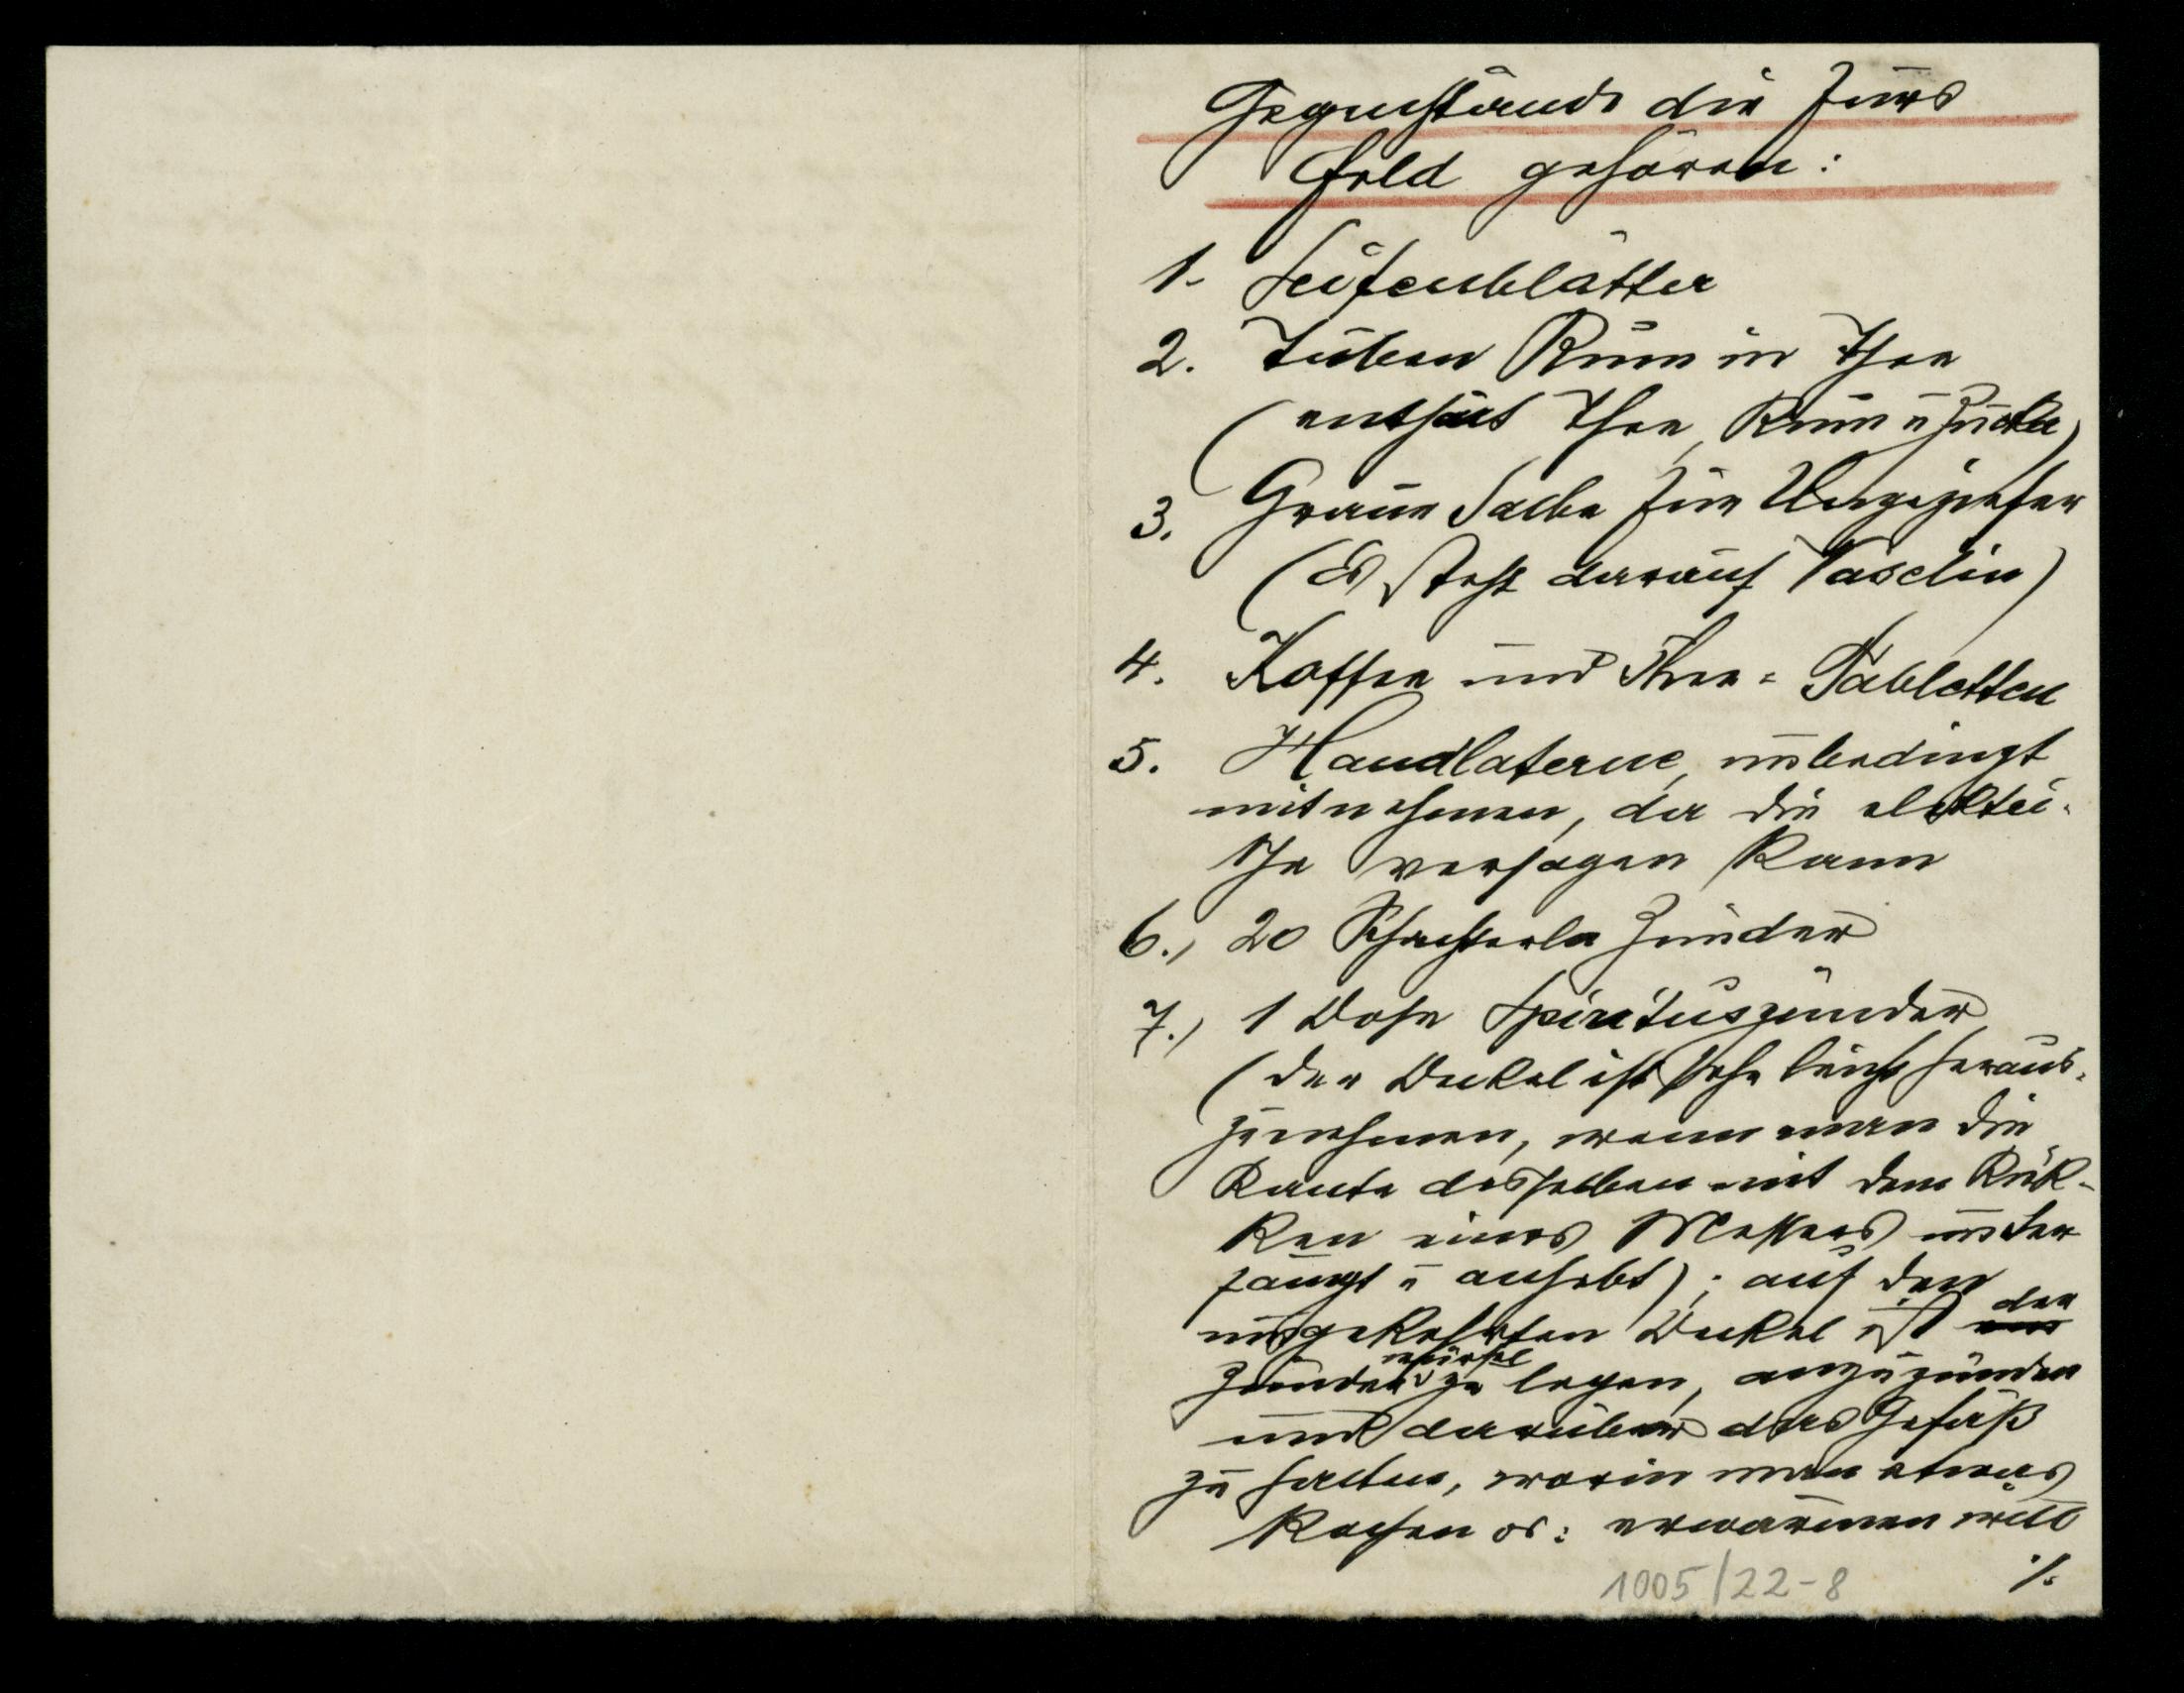 Gegenstände die Ins
Feld gehören:
1. Seifenblätter
2. Tuben Rum in Thee
(enthält Thee, Rum u Zucker)
3. Graue Salbe für Ungeziefer
(Es steht darauf Vaselin)
4. Kaffee und Thee-Tabletten
5. Handlaterne, unbedingt
mitnehmen, da die elektri-
sche versagen kann
6., 20 Schachterln Zünder
7., 1 Dose Spirituszünder
(der Deckel ist sehr leicht heraus-
zunehmen, wenn man die
Kante desselben mit dem Rük-
ken eines Messers unter
fängt u anhebt); auf den
umgekehrten Deckel ist der
Zünder würfel zu legen, anzuzünden
und darüber das Gefäß
zu halten, worin man etwas
kochen od: erwärmen will
./.
1005/22-8